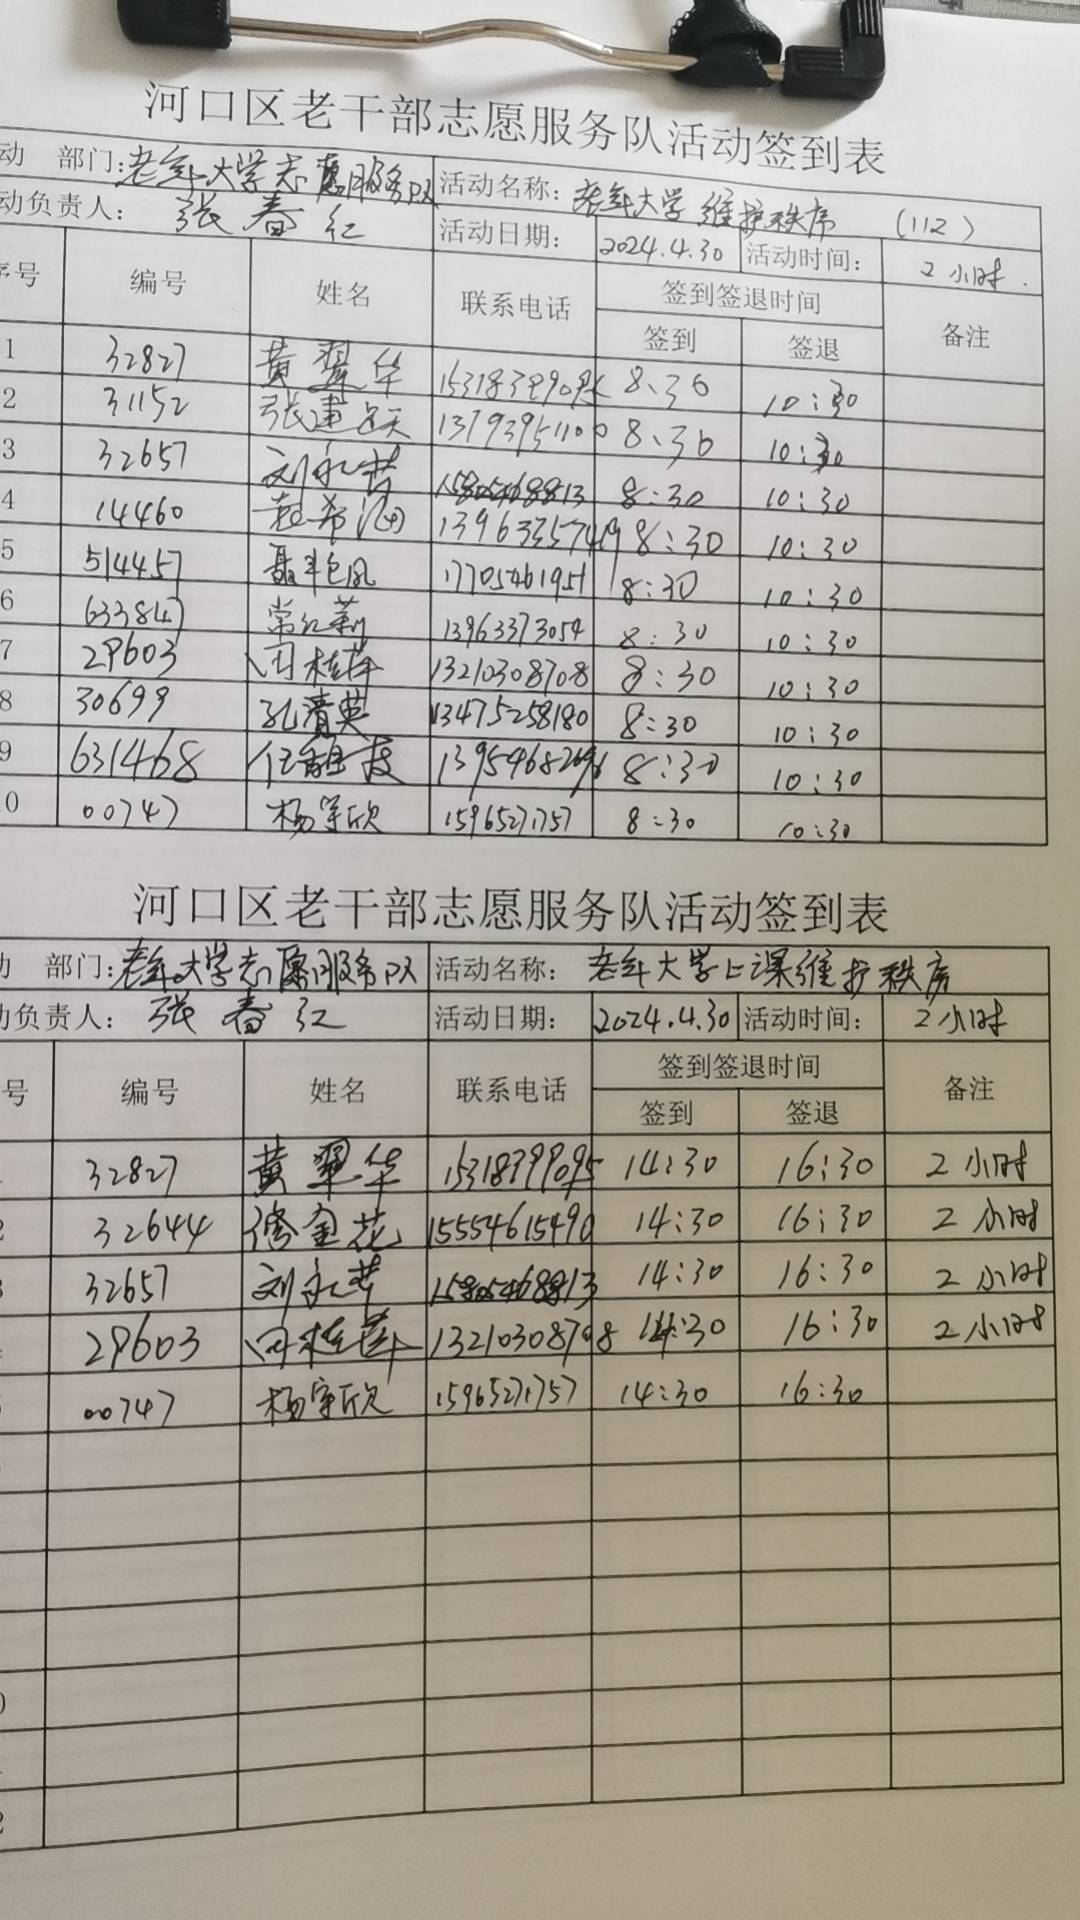 河口区老干部志愿服务队活动签到表
动 部门:老年大学志愿服务队 活动名称: 老年大学维护秩序 (112)
动负责人: 张春红 活动日期: 2024.4.30 活动时间: 2小时.
序号 编号 姓名 联系电话 签到签退时间 备注
签到 签退
1 32827 黄翠华 8:30 10:30
2 31152 13793951100 8:30 10:30
3 32657 刘永芳 15805468813 8:30 10:30
4 14460 8:30 10:30
5 514457 17705461951 8:30 10:30
6 633847 常红莉 13963373054 8:30 10:30
7 29603 田桂萍 13210308708 8:30 10:30
8 30699 孔清英 13475258180 8:30 10:30
9 631468 8:30 10:30
0 00747 杨宇欣 15965271757 8:30 10:30
河口区老干部志愿服务队活动签到表
动 部门:老年大学志愿服务队 活动名称: 老年大学上课维护秩序
动负责人: 张春红 活动日期: 2024.4.30 活动时间: 2小时
号 编号 姓名 联系电话 签到签退时间 备注
签到 签退
32827 黄翠华 15318399095 14:30 16:30 2小时
2 32644 15554615490 14:30 16:30 2小时
3 32657 刘永芳 15805468813 14:30 16:30 2小时
29603 田桂萍 13210308708 14:30 16:30 2小时
00747 杨宇欣 15965271757 14:30 16:30
0
2